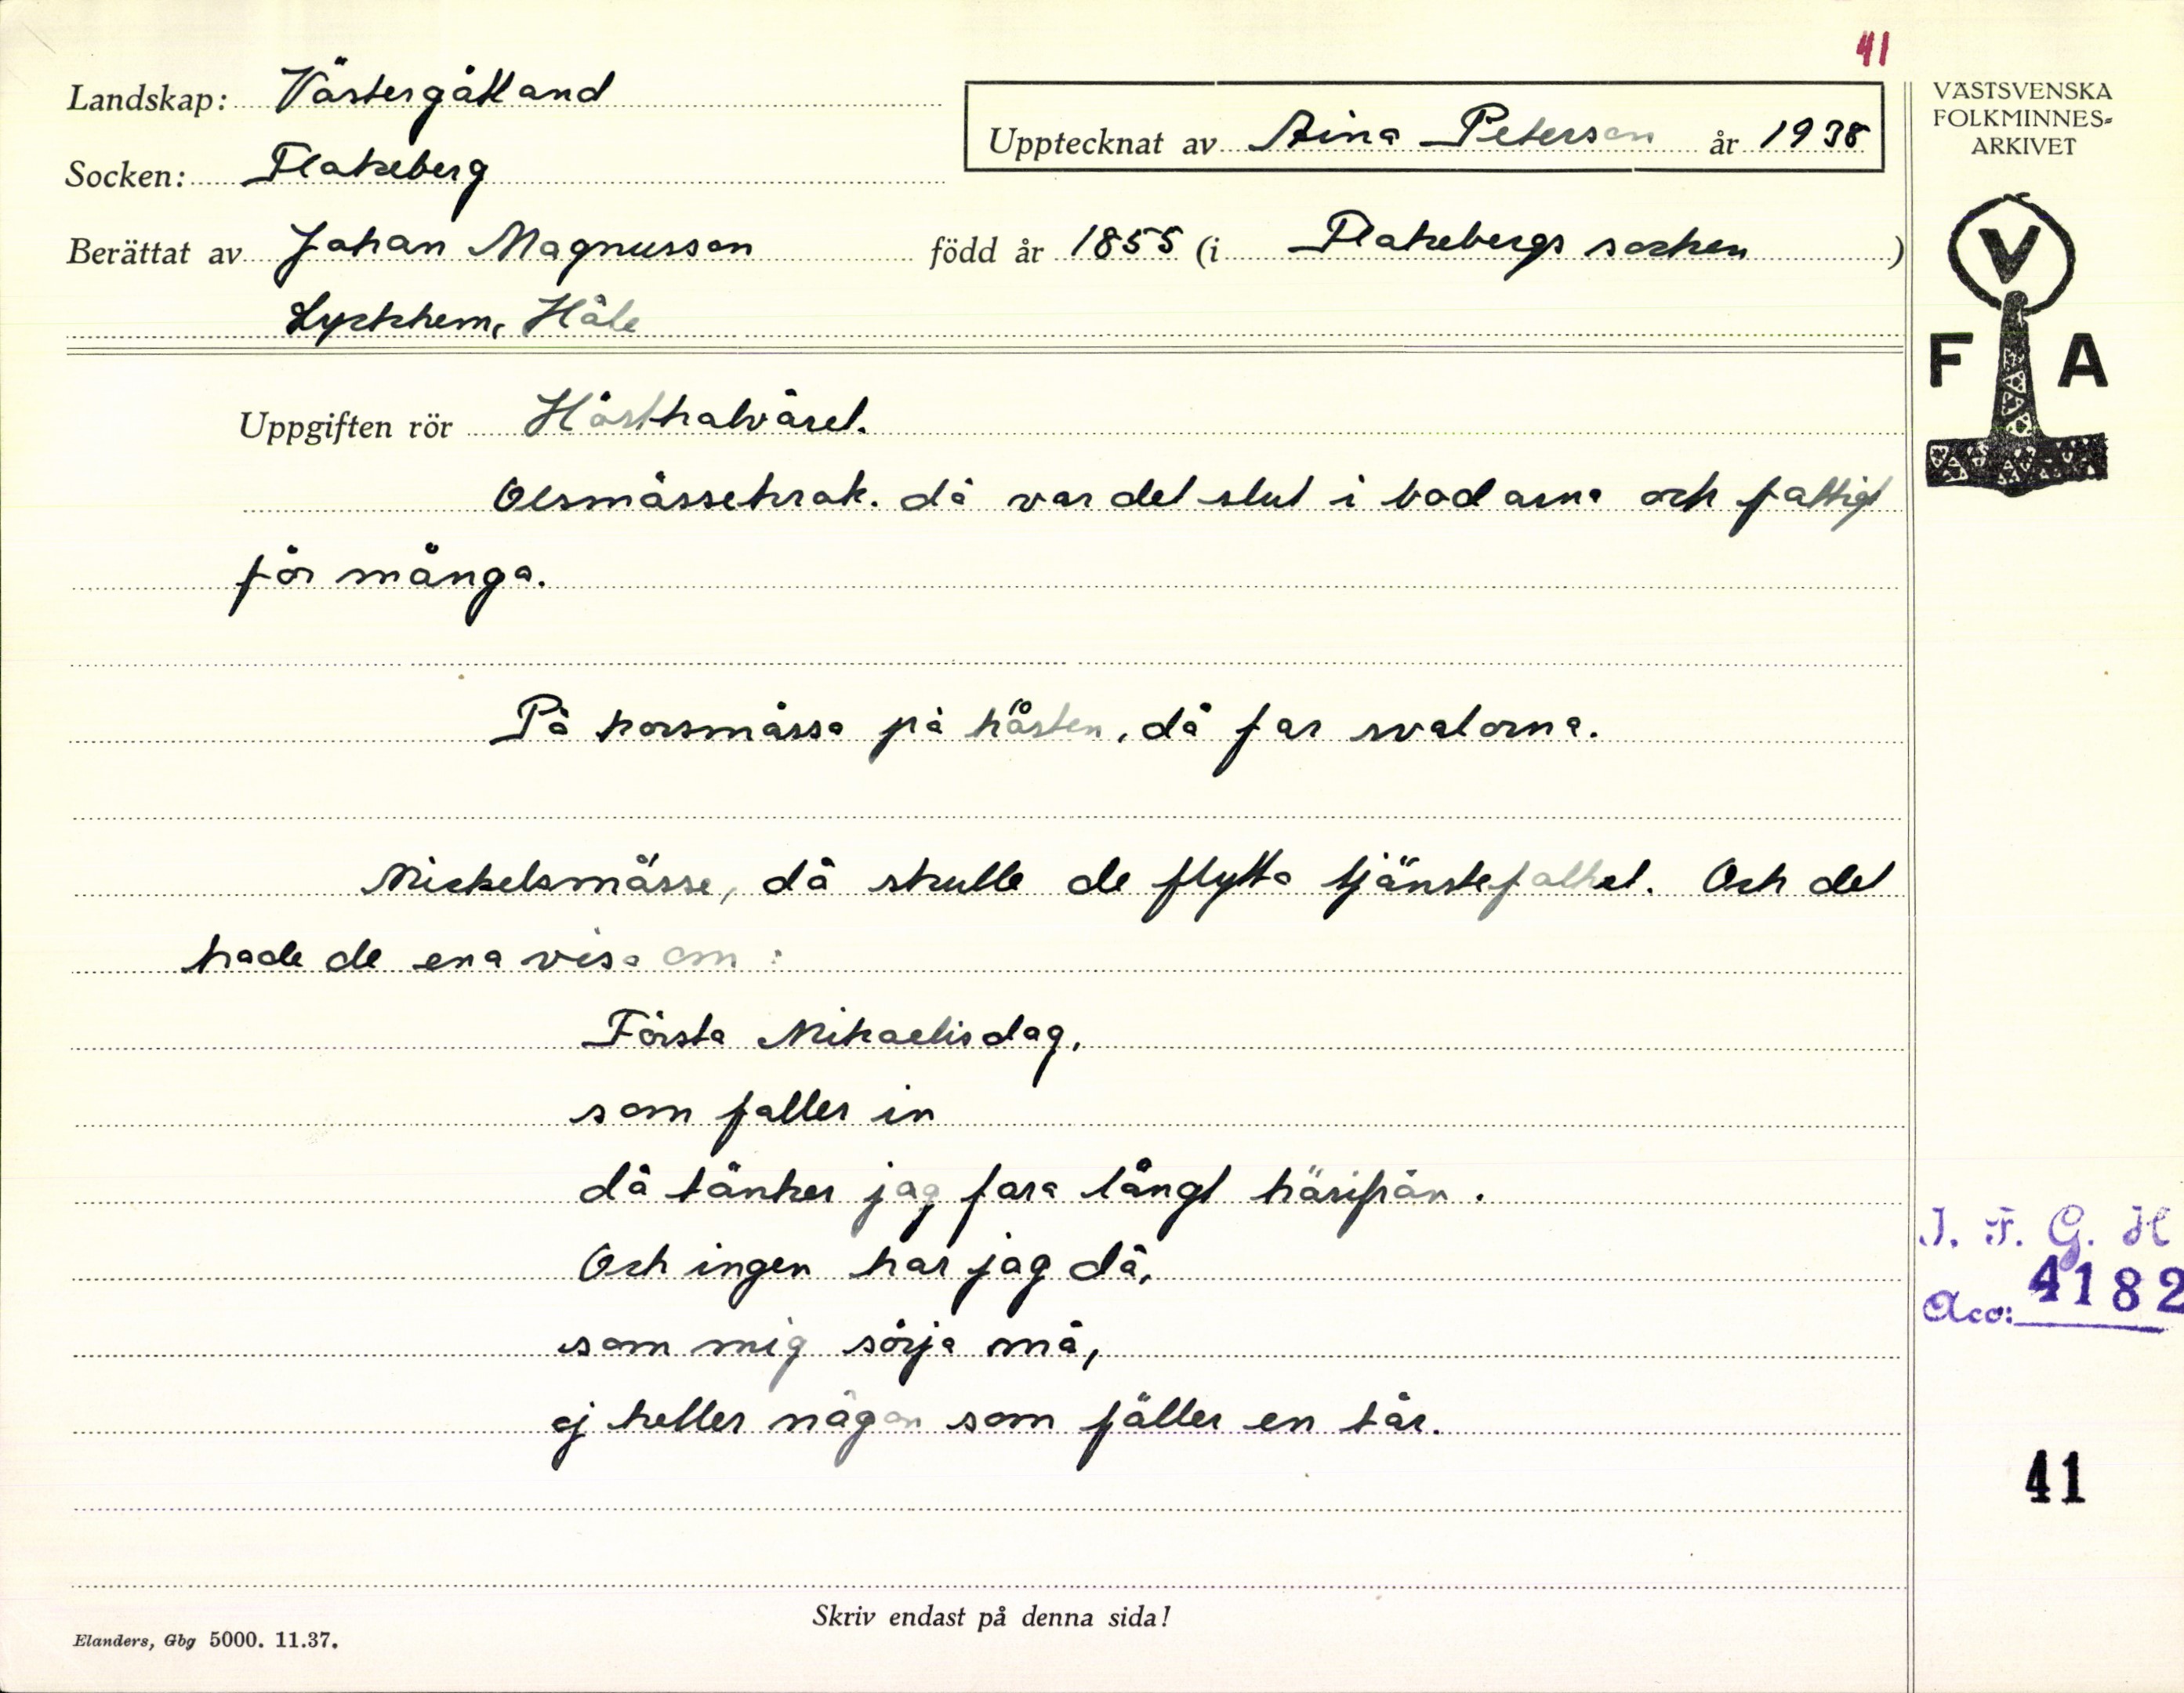 41
Landskap: Västergötland
Upptecknat av Aina Peterson år 1938
Socken: Flakeberg
Berättat av Johan Magnusson född år 1855 (i Flakebergs socken)
Lyckhem, Håle
Uppgiften rör Hösthalvåret.
Olsmässekrak. då var det slut i bodarna och fattigt
för många.
På korsmässa på hösten, då far svalorna.
Mickelsmässe, då skulle de flytta tjänstefolket. Och det
hade de ena visa om:
Första Mikaelisdag,
som faller in
då tänker jag fara långt härifrån.
Och ingen har jag då,
som mig sörja må,
ej heller någon som fäller en tår.
Skriv endast på denna sida!
Elanders, Gbg 5000. 11.37.
VÄSTSVENSKA
FOLKMINNES-
ARKIVET
V
F A
I. F. G. H
Acc: 4182
41